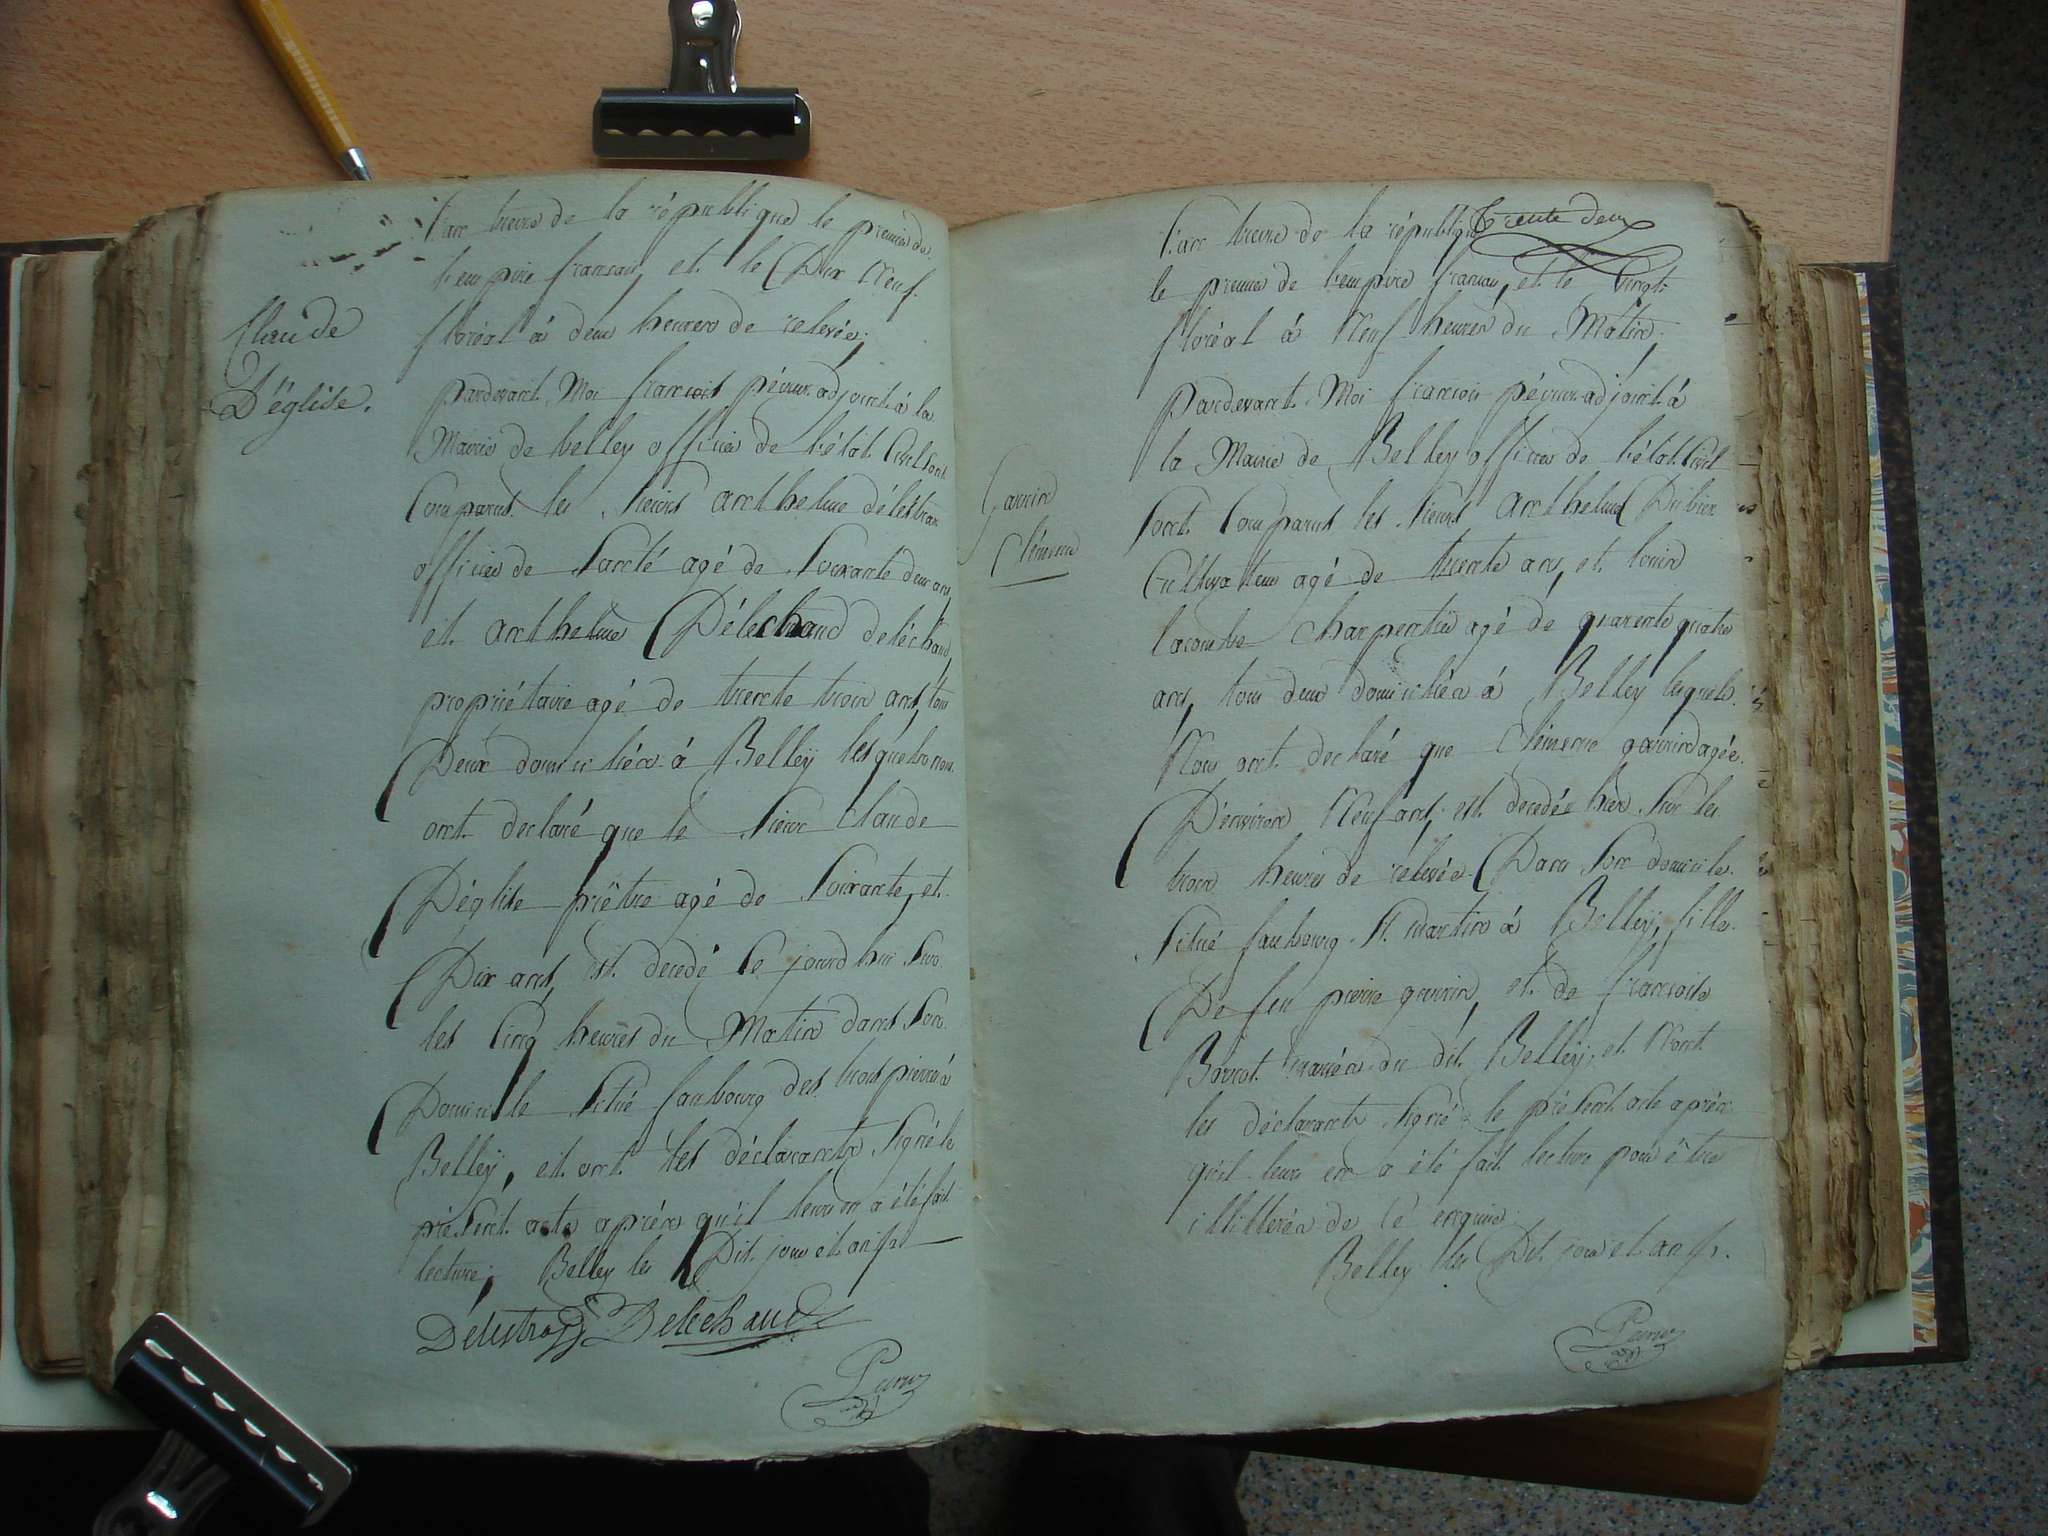 l'an treize de la république le premier de
l'empire francais, et le Dix Neuf
floréal à deux heures de relevée;
Claude
D'église.
pardevant Moi francois pévrux adjoint à la
Mairie de belley officier de l'état Civil sont
Comparus les sieurs anthelme déléstrax
officier de santé agé de soixante deux ans,
et anthelme Délechaud deléchaud,
propriétaire agé de trente trois ans, tous
Deux domiciliés à Belleÿ lesquels nous
ont declaré que le sieur claude
Déglise prêtre agé de soixante, et
Dix ans, est decedé ce jourd'hui sur
les Cinq heures du Matin dans son
Domicile situé faubourg des trois pierres à
Belleÿ, et ont les déclarants signé le
présent acte après qu'il leur en a été fait
lecture; Belley les Dit jour et an ci
Delechaud
trente deux
l'an treize de la république
le premier de l'empire francais, et le Vingt
floréal à Neuf heures du Matin;
pardevant Moi francois pévrux adjoint à
la Mairie de Belley officier de l'état Civil
Gauvin
Clémence
sont Comparus les sieurs anthelme Dubien
Cultivateur agé de trente ans, et louis
lacombe charpentier agé de quarente quatre
ans, tous deux domiciliés à Belleÿ lesquels
Nous ont declaré que Clémence gauvin agée
D'environ Neuf ans, est decedée hier sur les
trois heures de relevée Dans son domicile
situé faubourg St martin à Belleÿ, fille
De feu pierre gauvin, et de francoise
mariés du dit Belleÿ, et N'ont
les déclarants signé le présent acte après
qu'il leur en a été fait lecture pour être
illitterés de ce enquis
Belley les Dit jour et an